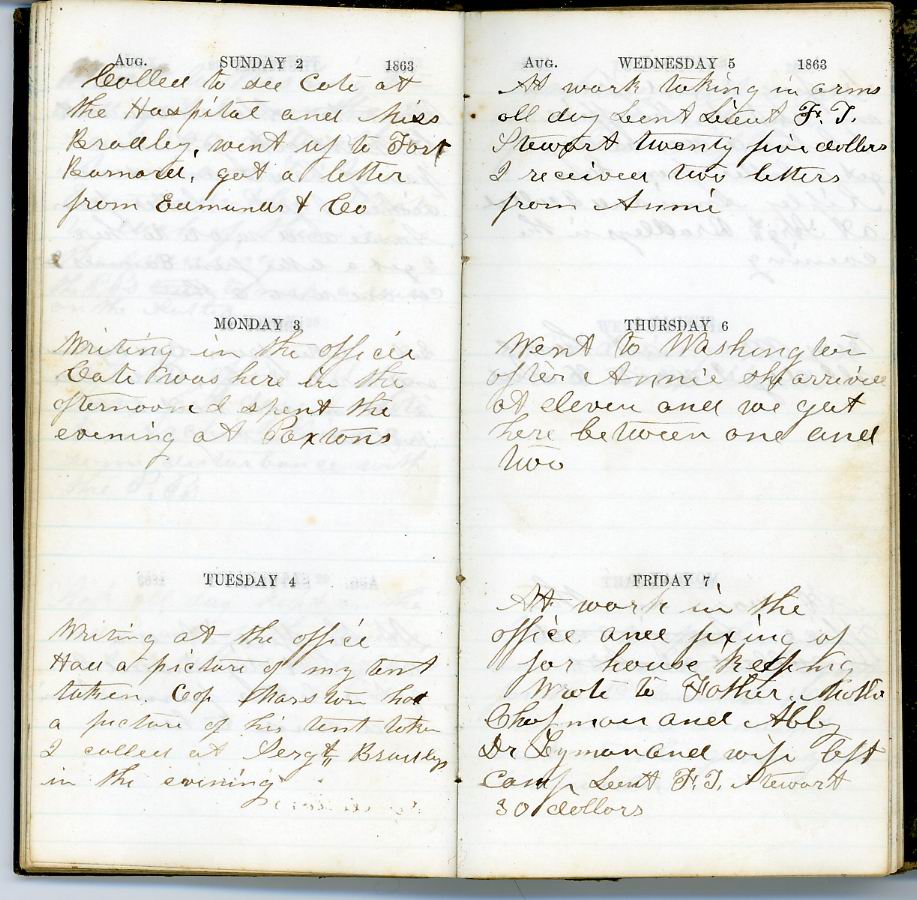 Aug. SUNDAY 2 1863
Called to see Cate at
the Hospital and Miss
Bradley, went up to Fort
Barnard, got a letter
from Edmunds & Co
MONDAY 3
Writing in the office
Cate was here in the
afternoon I spent the
evening at Paxtons
TUESDAY 4
Writing at the office
Had a picture of my tent
taken. Cap Marston had
a picture of his tent taken
I called at Sergt Bradleys
in the evening
Aug. WEDNESDAY 5 1863
At work taking in arms
all day Lent Lieut F. T.
Stewart twenty five dollars
I received two letters
from Annie
THURSDAY 6
Went to Washington
after Annie she arrived
at eleven and we got
here between one and
two
FRIDAY 7
At work in the
office and fixing up
for house keeping
Wrote to Father.
Chapman and Abby
Dr Lyman and wife left
camp Lent F. T. Stewart
30 dollars